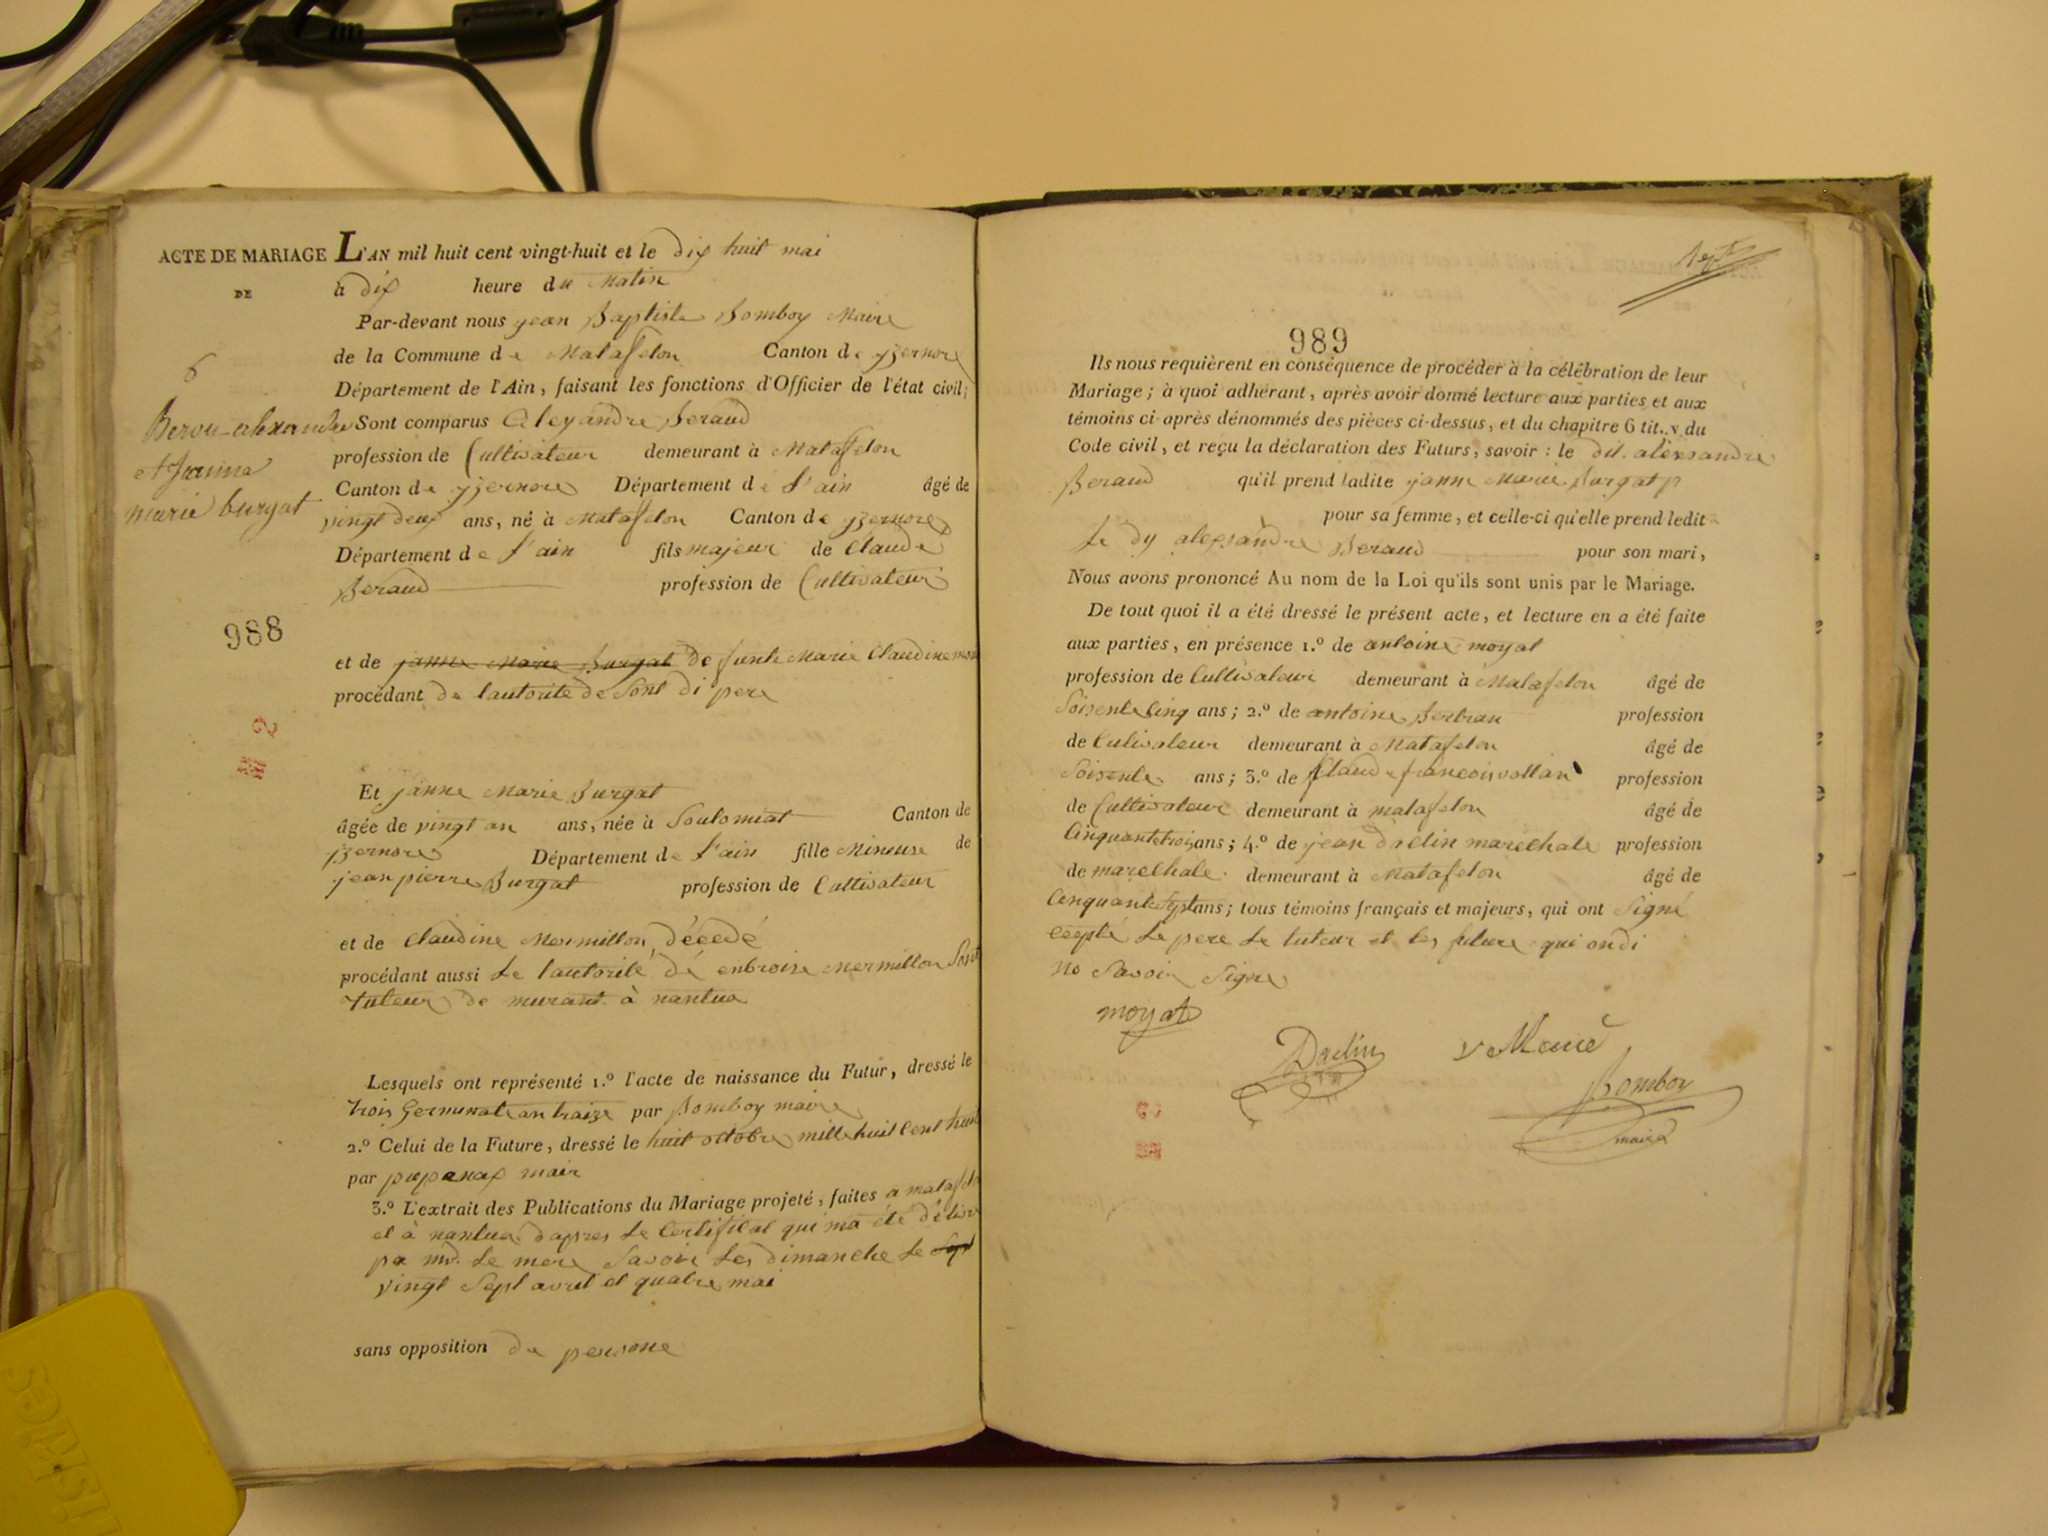 ACTE DE MARIAGE
DE
6
Berou alexandre
et Jeanne
marie burgat
988
L'AN mil huit cent vingt-huit et le dix huit mai
à dix heure du Matin
Par-devant nous jean Baptiste Bomboy Maire
de la Commune de Matafelon Canton de yzernore
Département de l'Ain, faisant les fonctions d'Officier de l'état civil;
Sont comparus Aleyandre Beraud
profession de Cultivateur demeurant à Matafelon
Canton de yzernore Département de l'ain âgé de
vingt deux ans, né à Matafelon Canton de yzernore
Département de l'ain fils majeur de Claude
Beraud profession de Cultivateur
et de janne Marie Burgat de funte Marie Claudine
procédant de l'autorite de Sont di pere
Et janne Marie Burgat
âgée de vingt an ans, née à Soulomiat Canton de
yzernore Département de l'ain fille Mineure de
jean pierre Burgat profession de Cultivateur
et de Claudine Mermillon décedé
procédant aussi de l'autorité dé enbroise Mermillon Sont
tuteur de murant à nantua
Lesquels ont représenté 1.º l'acte de naissance du Futur, dressé le
trois Germinal an traize par Bomboy maire
2.º Celui de la Future, dressé le huit octobre mille huit Cent huit
par mair
3.º L'extrait des Publications du Mariage projeté, faites a matafelo
et à nantua d'apres le Certificat qui ma été délivr
pa mr. le mere Savoir les dimanche le Sept
vingt Sept avril et quatre mai
sans opposition de persone
989
Ils nous requièrent en conséquence de procéder à la célébration de leur
Mariage; à quoi adhérant, après avoir donné lecture aux parties et aux
témoins ci-après dénommés des pièces ci-dessus, et du chapitre 6 tit. v du
Code civil, et reçu la déclaration des Futurs, savoir: le dit. alexsandre
Beraud qu'il prend ladite janne Marie Burgat
pour sa femme, et celle-ci qu'elle prend ledit
Le dy alexsandre Beraud pour son mari,
Nous avons prononcé Au nom de la Loi qu'ils sont unis par le Mariage.
De tout quoi il a été dressé le présent acte, et lecture en a été faite
aux parties, en présence 1.º de antoine moyat
profession de Cultivateur demeurant à Matafelon âgé de
Soisente Cinq ans; 2.º de antoine Bertrau profession
de Culivateur demeurant à Matafelon âgé de
Soisente ans; 3.º de Claude francois vollan profession
de Cultivateur demeurant à matafelon âgé de
Cinquante troi ans; 4.º de jean Drelin marechale profession
de marechale demeurant à Matafelon âgé de
Cinquante Sept ans; tous témoins français et majeurs, qui ont Signé
Cepté Le pere Le tuteur et les future qui on di
no Savoir Signe
moyat
Drelin
Bomboy
maire